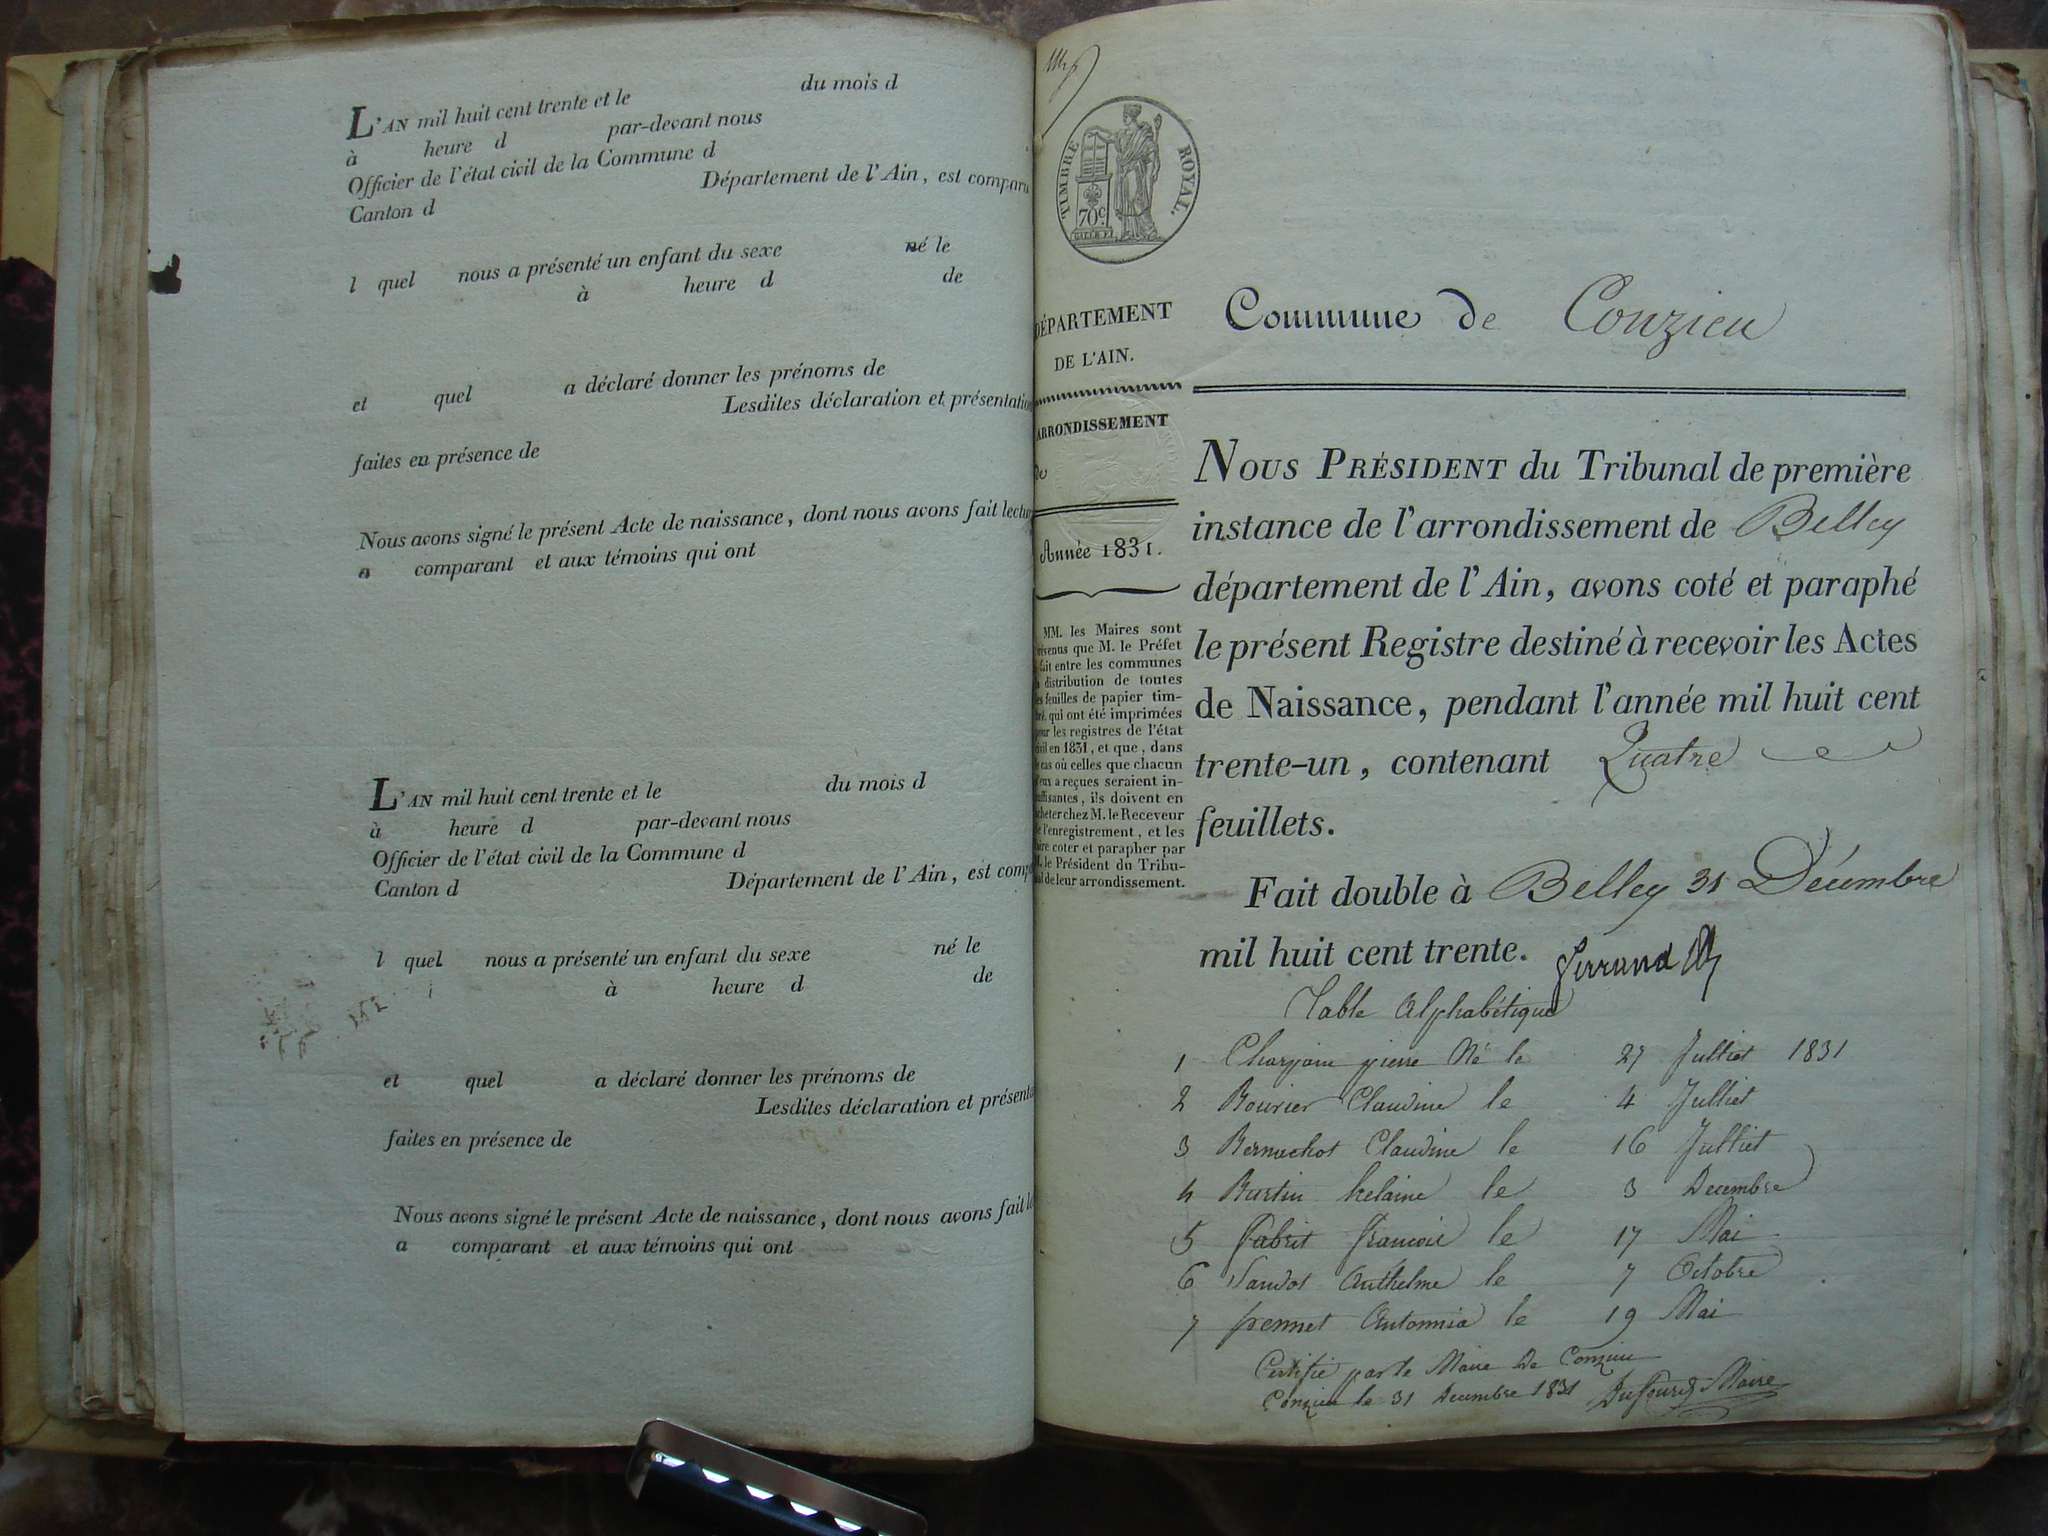 L'AN mil huit cent trente et le du mois d
à heure d par-devant nous
Officier de l'état civil de la Commune d
Canton d Département de l'Ain, est comparu
l quel nous a présenté un enfant du sexe né le
à heure d de
et quel a déclaré donner les prénoms de
Lesdites déclaration et présentation
faites en présence de
Nous avons signé le présent Acte de naissance, dont nous avons fait lectu
a comparant et aux témoins qui ont
L'AN mil huit cent trente et le du mois d
à heure d par-devant nous
Officier de l'état civil de la Commune d
Canton d Département de l'Ain, est comp
l quel nous a présenté un enfant du sexe né le
à heure d de
et quel a déclaré donner les prénoms de
Lesdites déclaration et présenta
faites en présence de
Nous avons signé le présent Acte de naissance, dont nous avons fait le
a comparant et aux témoins qui ont
TIMBRE ROYAL.
70c.
DÉPARTEMENT
DE L'AIN.
ARRONDISSEMENT
de
Année 1831.
MM. les Maires sont
évenus que M. le Préfet
fait entre les communes
a distribution de toutes
es feuilles de papier tim-
bré qui ont été imprimées
our les registres de l'état
ivil en 1831, et que, dans
e cas où celles que chacun
'eux a reçues seraient in-
uffisantes, ils doivent en
cheter chez M. le Receveur
e l'enregistrement, et les
aire coter et parapher par
M. le Président du Tribu-
al de leur arrondissement.
Commune de Conzieu
NOUS PRÉSIDENT du Tribunal de première
instance de l'arrondissement de Belley
département de l'Ain, avons coté et paraphé
le présent Registre destiné à recevoir les Actes
de Naissance, pendant l'année mil huit cent
trente-un, contenant Quatre
feuillets.
Fait double à Belley 31 Décembre
mil huit cent trente. Ferrand
Table Alphabétique
1 pierre Né le 27 Julliet 1831
2 Rourier Claudine le 4 Julliet
3 Bernuchot Claudine le 16 Julliet
4 Burtin helaine le 3 Decembre
5 Fabrit francois le 17 Mai
6 Anthelme le 7 Octobre
7 Antonnia le 19 Mai
Certifié par le Maire De Conzieu
Conzieu le 31 Decembre 1831 Maire